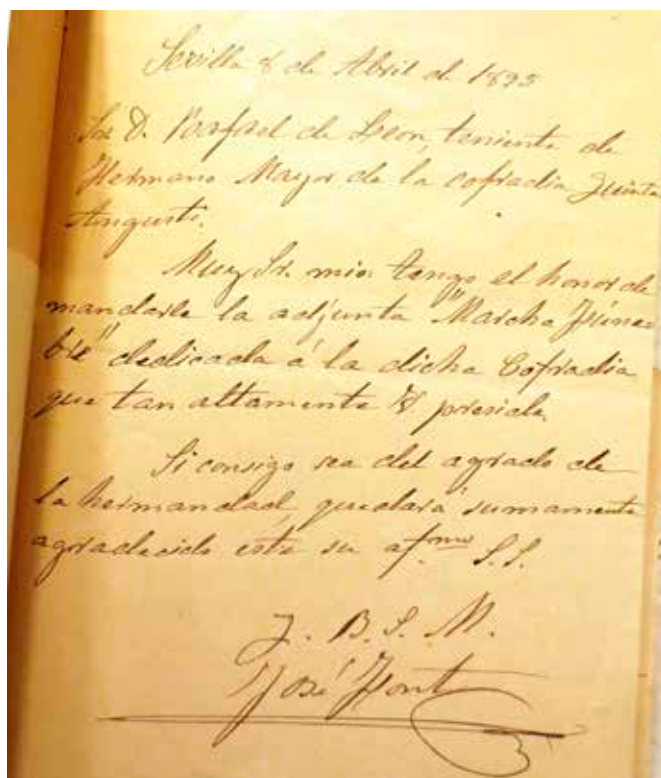 Sevilla 8 de Abril de 1895
Sor D. Rafael de Leon, teniente de
Hermano Mayor de la cofradia Quinta
Angusti.
Muy Sr. mio: tengo el honor de
mandarle la adjunta "Marcha Fúne-
bre" dedicada á la dicha Cofradia
que tan altamente V preside.
Si consigo sea del agrado de
la hermandad, quedará sumamente
agradecido este su afmo S.S.
Q. B. S. M.
José Font